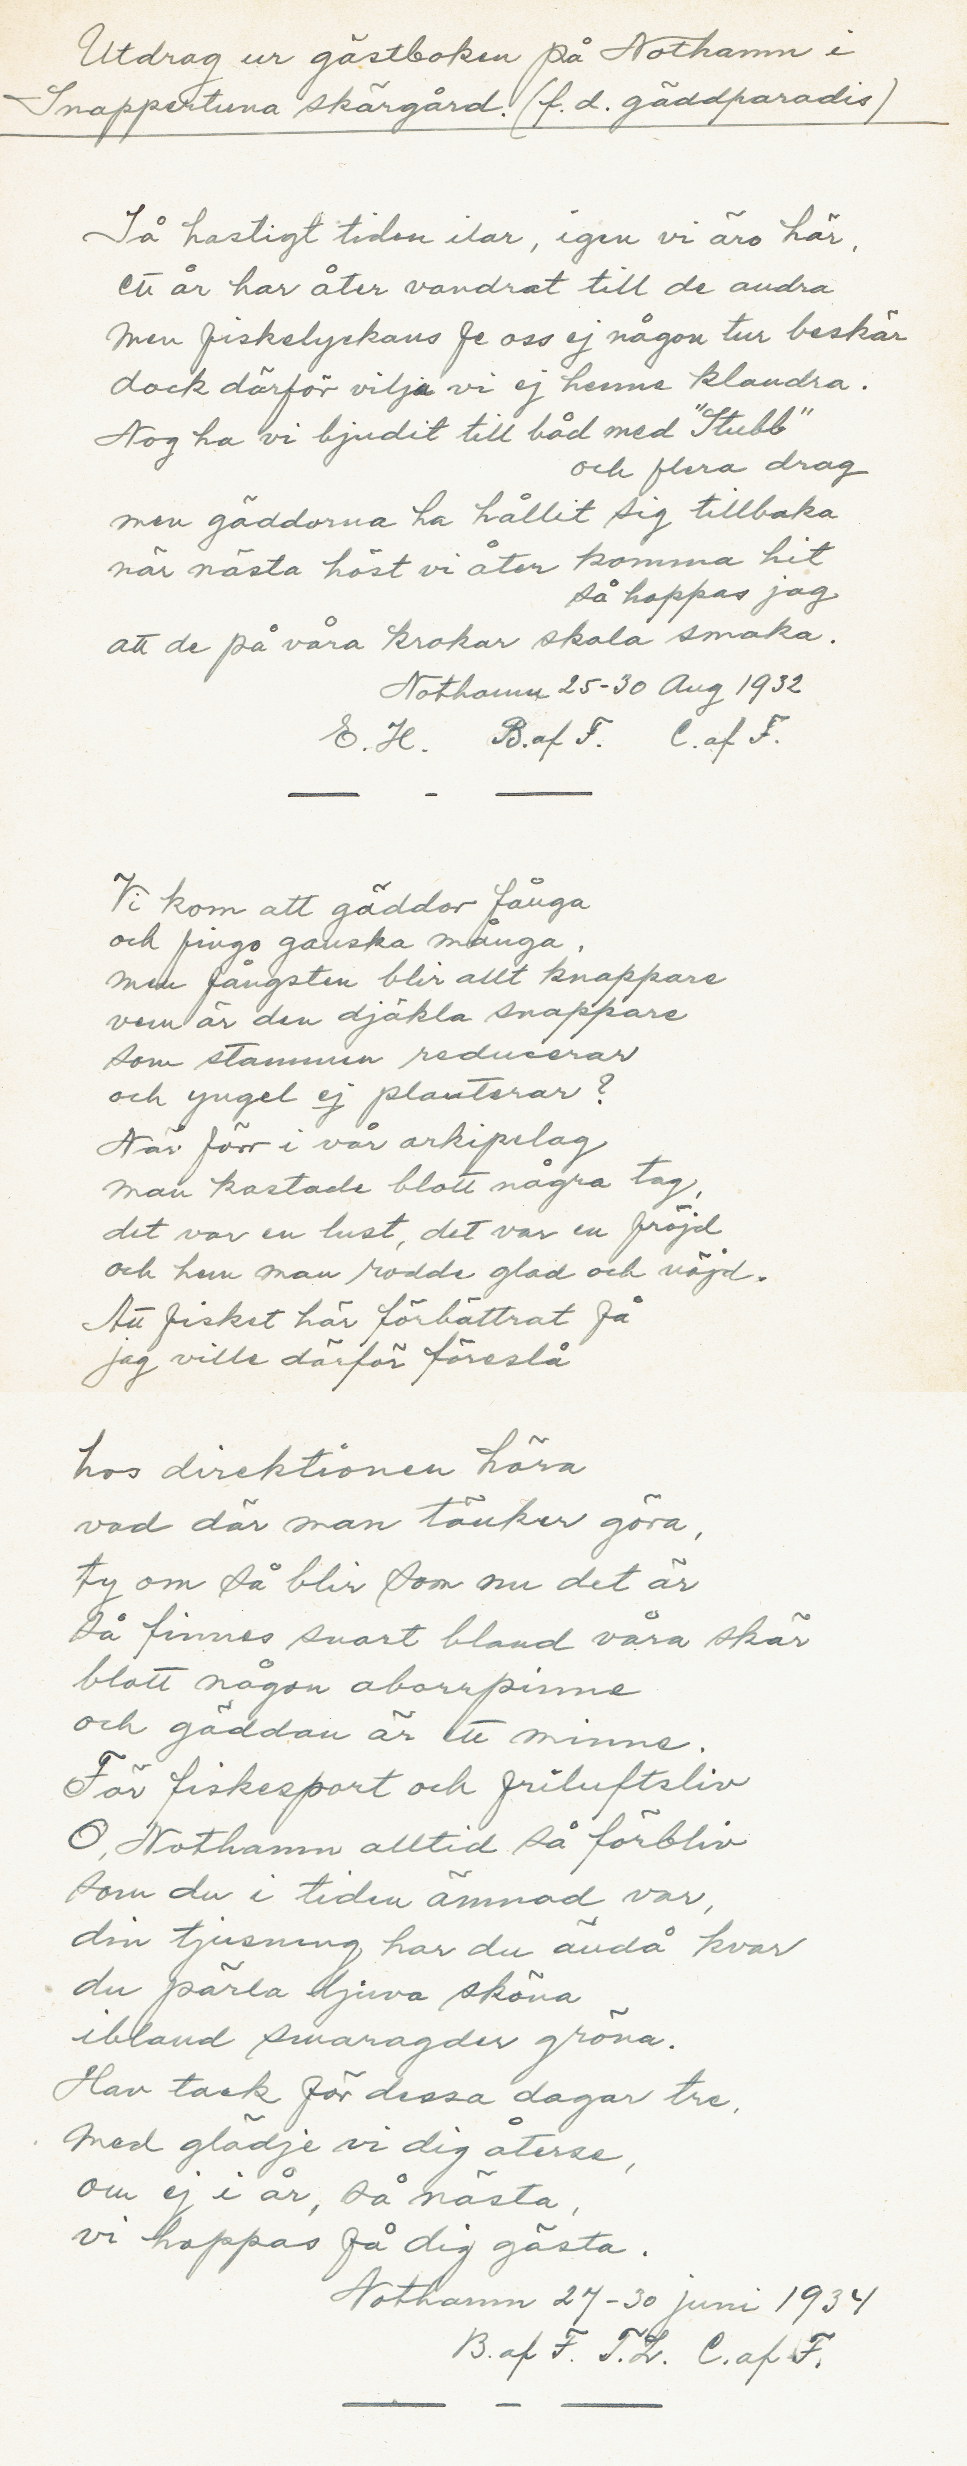 Utdrag ur gästboken på Nothamn i
Snappertuna skärgård. (f.d. gäddparadis)
Så hastigt tiden ilar, igen vi äro här,
ett år har åter vandrat till de andra
men fiskelyckans fe oss ej någon tur beskär
dock därför vilja vi ej henne klandra.
Nog ha vi bjudit till båd med "Stubb"
och flera drag
men gäddorna ha hållit sig tillbaka
när nästa höst vi åter komma hit
så hoppas jag
att de på våra krokar skola smaka.
Nothamn 25-30 Aug 1932
E. H. B. af F. C. af F.
Vi kom att gäddor fånga
och fingo ganska många,
men fångsten blir allt knappare
vem är den djäkla snappare
som stammen reducerar
och yngel ej planterar?
När förr i vår arkipelag
man kastade blott några tag,
det var en lust, det var en fröjd
och hem man rodde glad och nöjd.
Att fisket här förbättrat få
jag ville därför föreslå
hos direktionen höra
vad där man tänker göra,
ty om så blir som nu det är
så finnes snart bland våra skär
blott någon aborrpinne
och gäddan är ett minne.
För fiskesport och friluftsliv
O, Nothamn alltid så förbliv
som du i tiden ämnad var,
din tjusning har du ändå kvar
du pärla ljuva sköna
ibland smaragder gröna.
Hav tack för dessa dagar tre,
med glädje vi dig återse,
om ej i år, så nästa,
vi hoppas få dig gästa.
Nothamn 27-30 juni 1934
B. af F. T.L. C. af F.